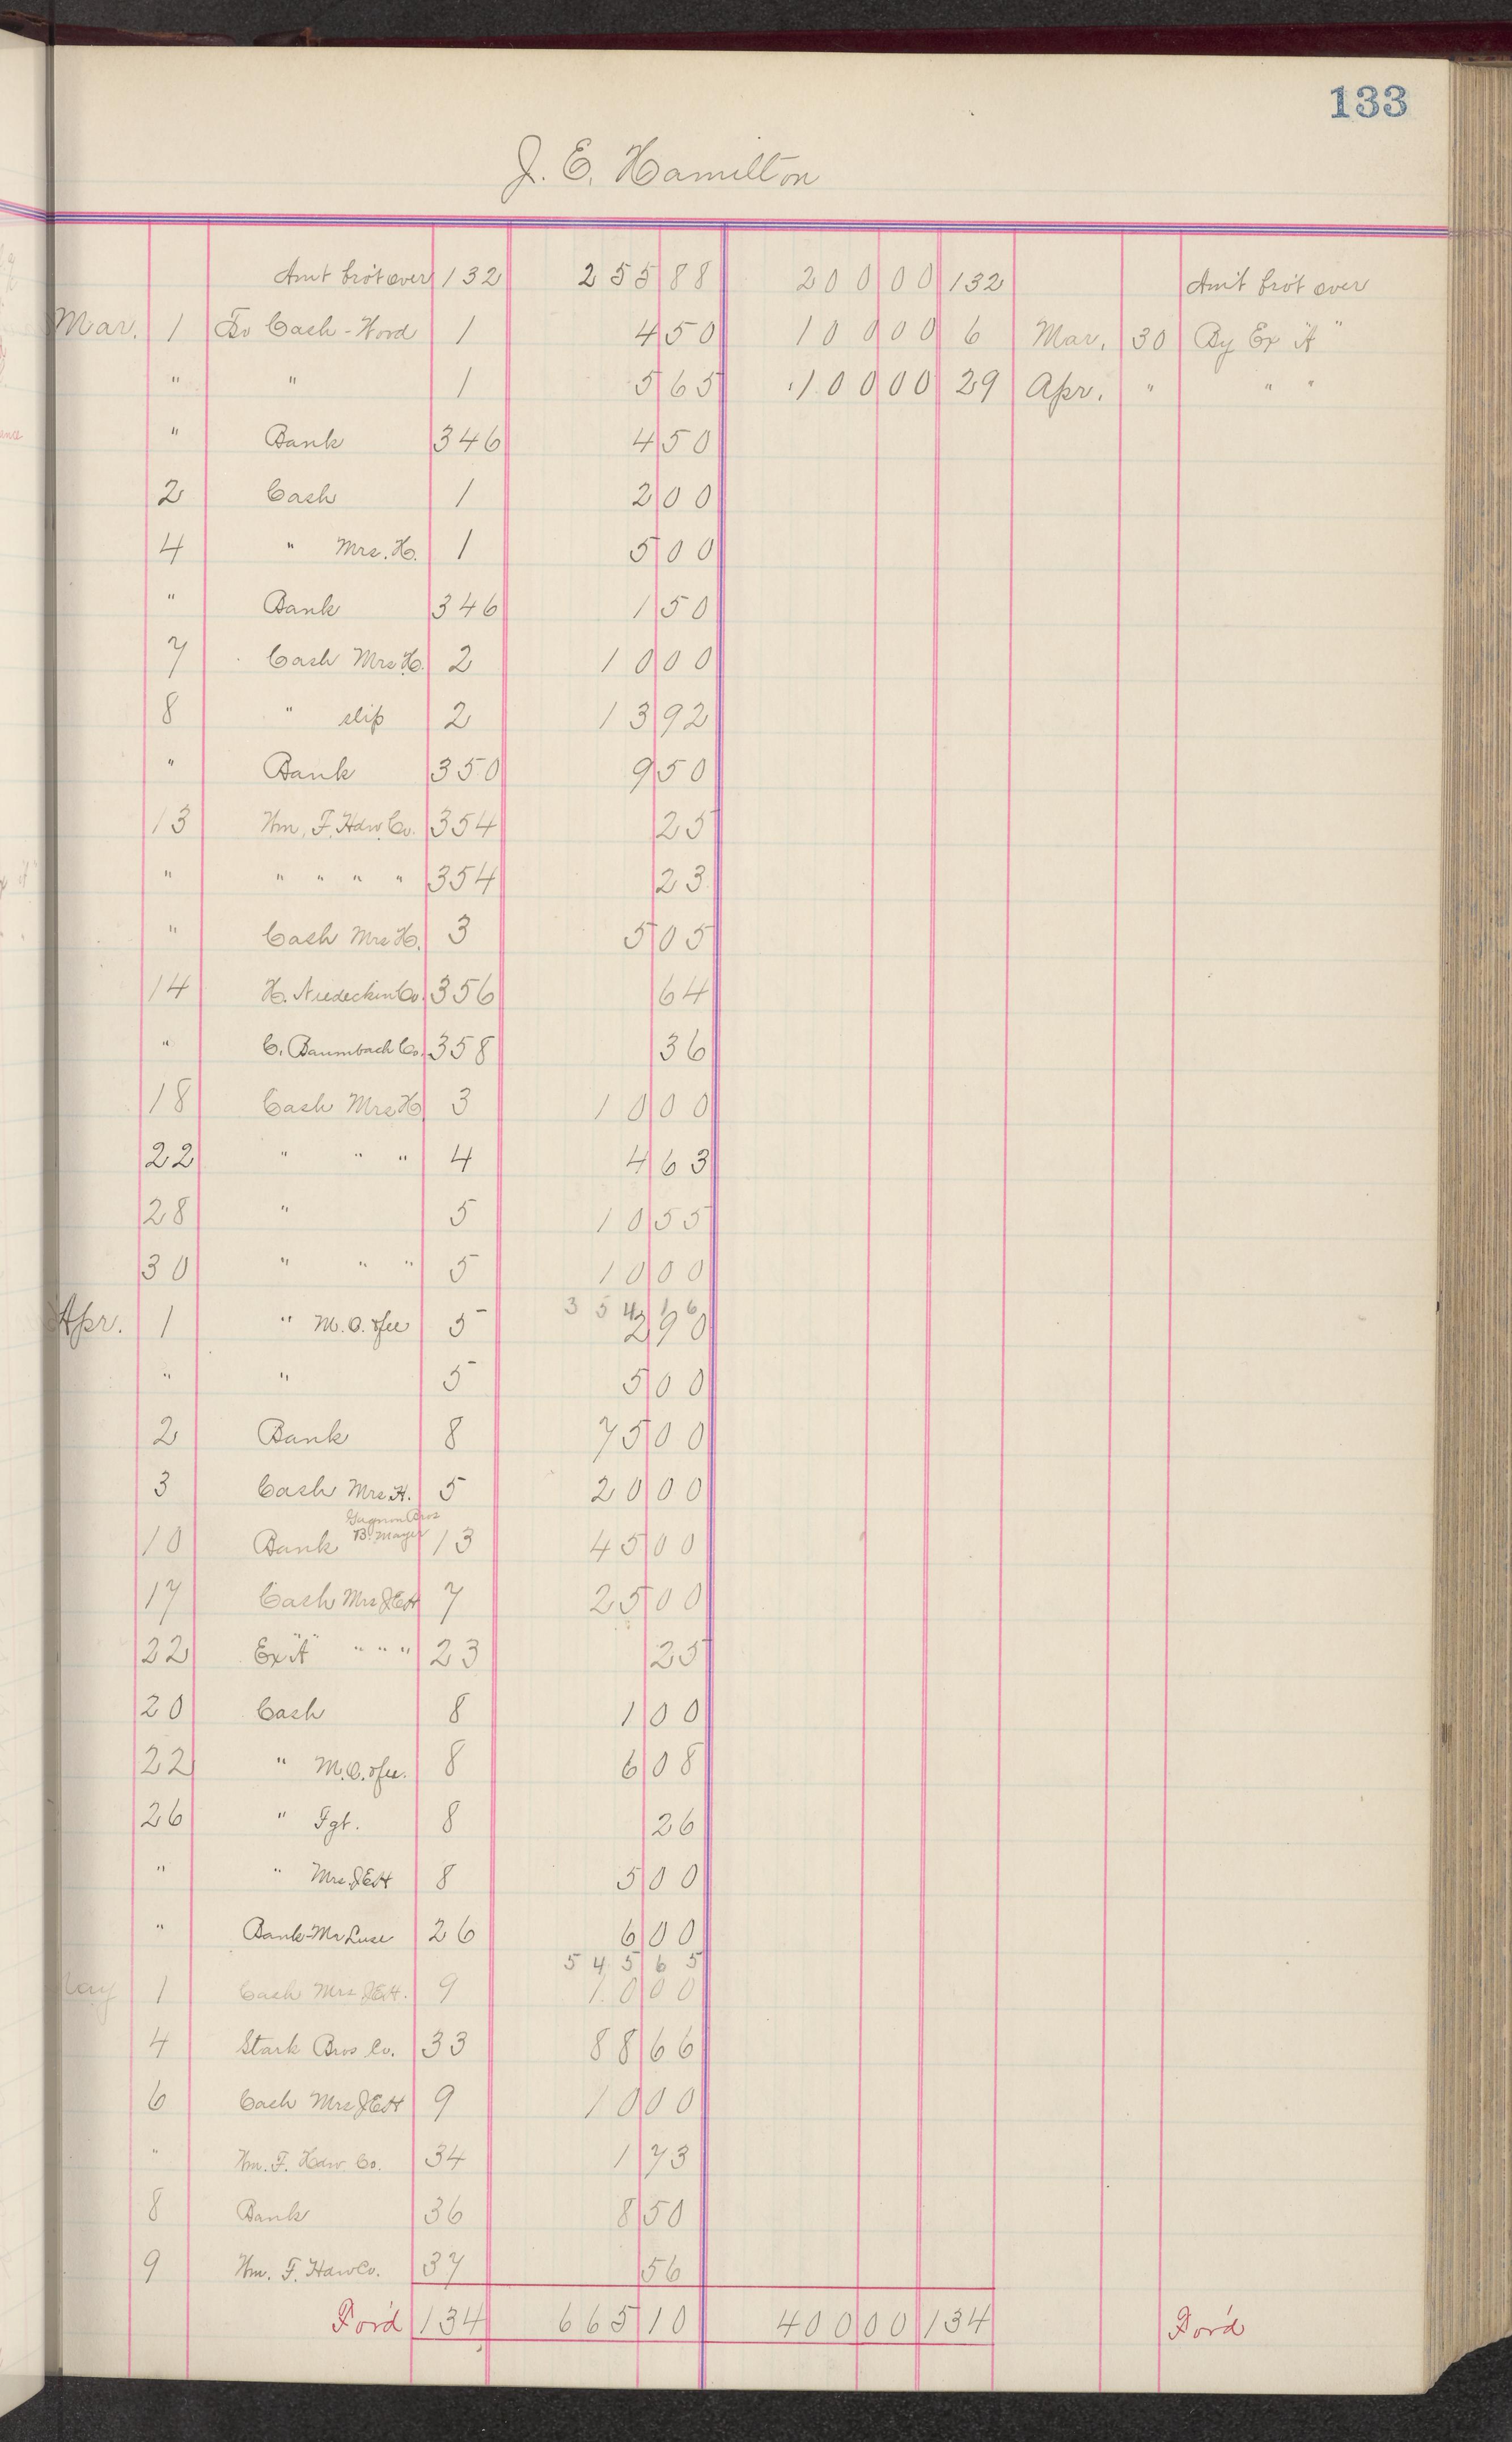 133
J. E. Hamilton
Amt bro't over 132 255 88 200 00 132 Am't bro't over
Mar. 1 To Cash - Word 1 4 50 100 00 6 Mar. 30 By Ex "A"
" " 1 5 65 100 00 29 Apr. " " "
" Bank 346 4 50
2 Cash 1 2 00
4 " Mrs. H. 1 5 00
" Bank 346 1 50
7 Cash Mrs H. 2 10 00
8 " slip 2 13 92
" Bank 350 9 50
13 Wm. F. Hdw. Co. 354 25
" " " " " 354 23
" Cash Mrs H. 3 5 05
14 H. Niedecken Co. 356 64
" C. Baumbach Co. 358 36
18 Cash Mrs H 3 10 00
22 " " " 4 4 63
28 " 5 10 55
30 " " " 5 10 00
354 16
Apr. 1 " M.O. & fee 5 2 90
" " 5 5 00
2 Bank 8 75 00
3 Cash Mrs H. 5 20 00
Gagnon Bros
10 Bank B. Mayer 13 45 00
17 Cash Mrs JEH 7 25 00
22 Ex "A" " " " 23 25
20 Cash 8 1 00
22 " M.O. & fee. 8 6 08
26 " Fgt. 8 26
" " Mrs JEH 8 5 00
" Bank - Mr Luse 26 6 00
545 65
May 1 Cash Mrs JEH. 9 10 00
4 Stark Bros Co. 33 88 66
6 Cash Mrs JEH 9 10 00
" Wm. F. Hdw. Co. 34 1 73
8 Bank 36 8 50
9 Wm. F. Hdw Co. 37 56
For'd 134 665 10 400 00 134 For'd